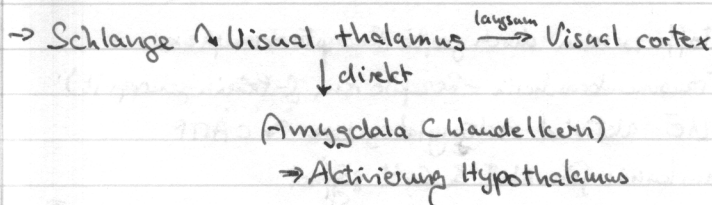 → Schlange ↘ Visual thalamus langsam → Visual cortex
↓ direkt
Amygdala (Mandelkern)
⇒ Aktivierung Hypothalamus